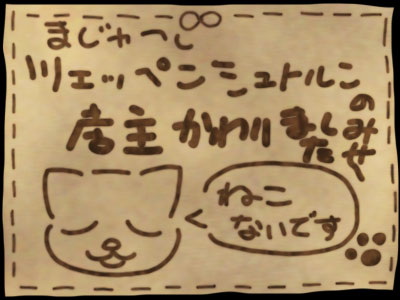 まじゃっし
ツェッペンシュトルン
のみせ
店主かわりました
ねこ
ないです